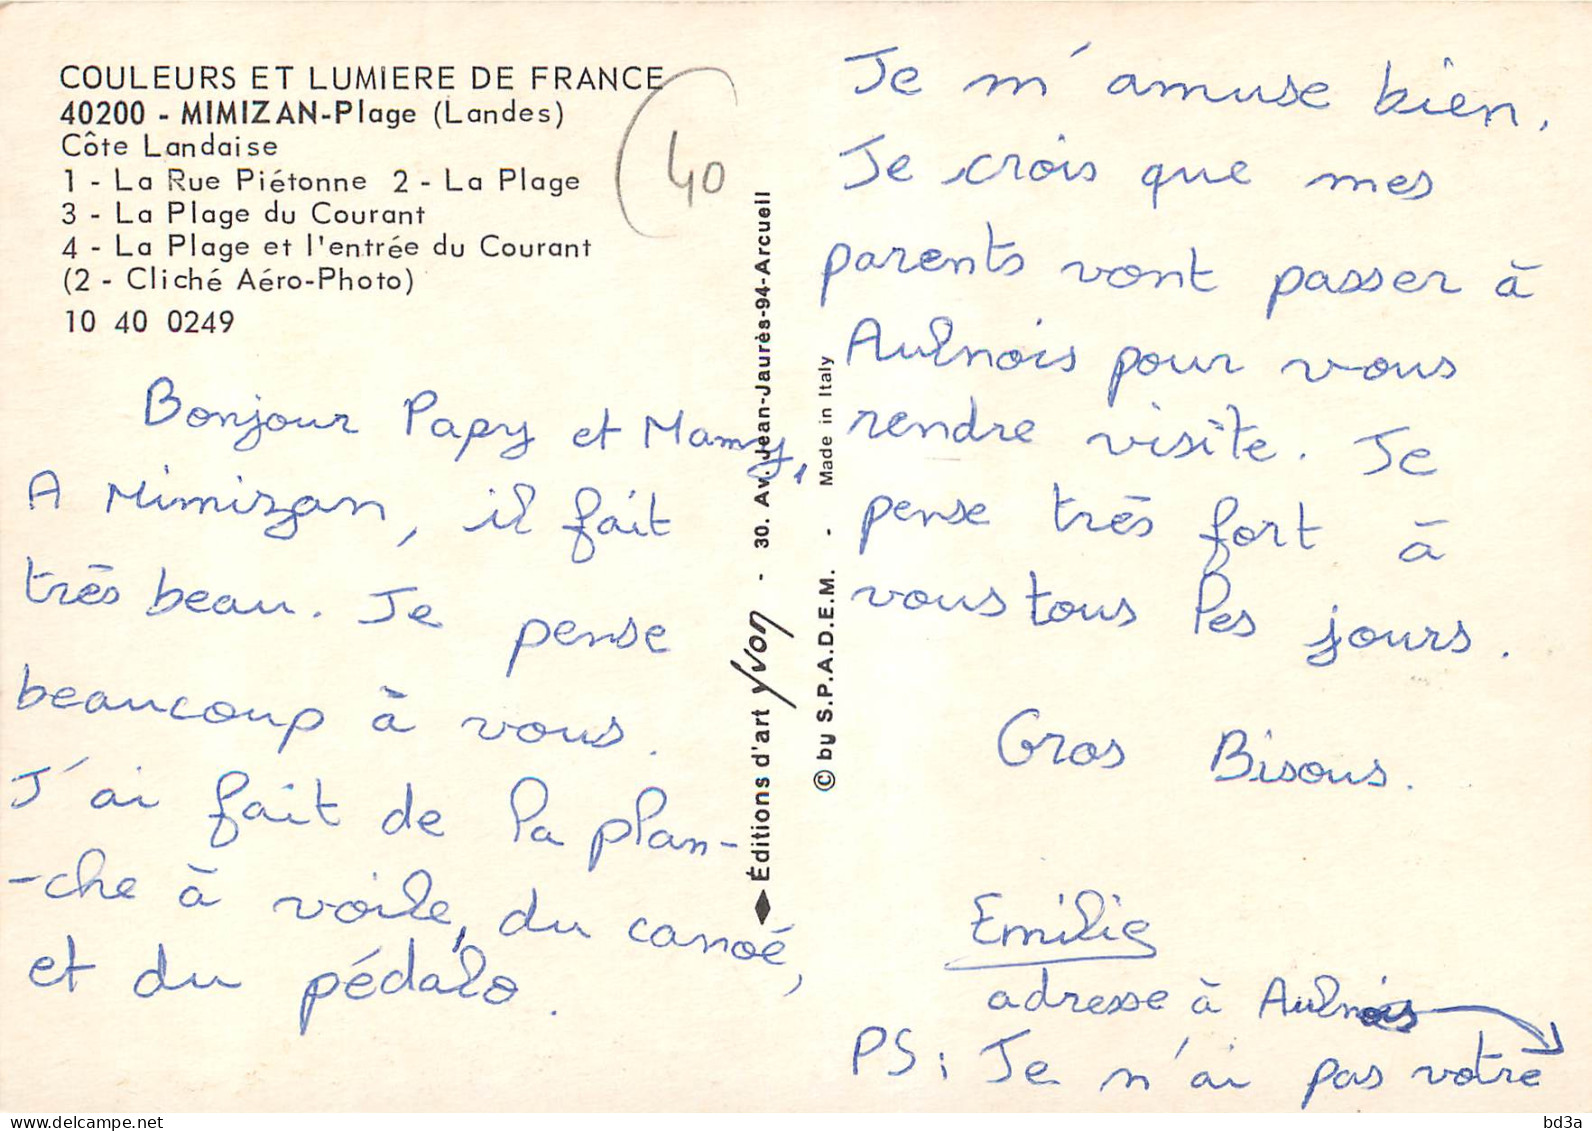 COULEURS ET LUMIERE DE FRANCE
40200 - MIMIZAN-Plage (Landes)
Côte Landaise
1 - La Rue Piétonne 2 - La Plage
3 - La Plage du Courant
4 - La Plage et l'entrée du Courant
(2 - Cliché Aéro-Photo)
10 40 0249
40
Bonjour Papy et Mamy,
A Mimizan, il fait
très beau. Je pense
beaucoup à vous.
J'ai fait de la plan-
-che à voile, du canoé,
et du pédalo.
Éditions d'art Yvon - 30. Av. Jean-Jaurès-94-Arcueil
© by S.P.A.D.E.M. - Made in Italy
Je m'amuse bien.
Je crois que mes
parents vont passer à
Aulnois pour vous
rendre visite. Je
pense très fort à
vous tous les jours.
Gros Bisous.
Emilie
adresse à Aulnois
PS: Je n'ai pas votre
delcampe.net
bd3a